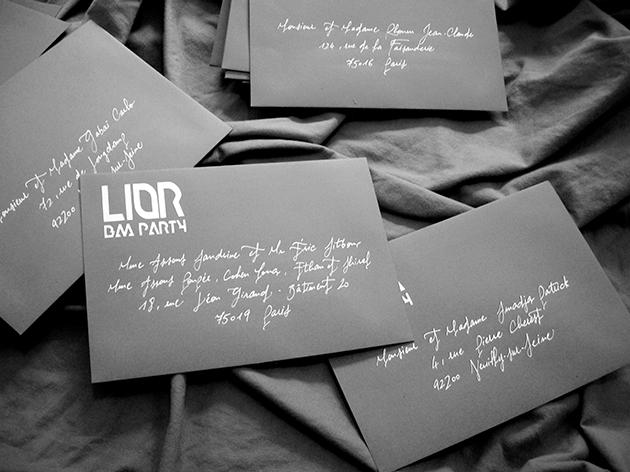 Monsieur et Madame Jean-Claude
124, rue de la Faisanderie
75016 Paris
Monsieur et Madame Gabaï Carlo
72, rue de Longchamp
92200 sur-Seine
LIOR
BM PARTY
Mme Assous Sandrine et Mr Éric Sitbon
Mme Assous Poupée, Cohen Ethan et Shirel
18, rue Léon Giraud. Bâtiment 20
75019 Paris
Monsieur et Madame Amadjar Patrick
41, rue Pierre Cherest
92200 Neuilly-sur-Seine